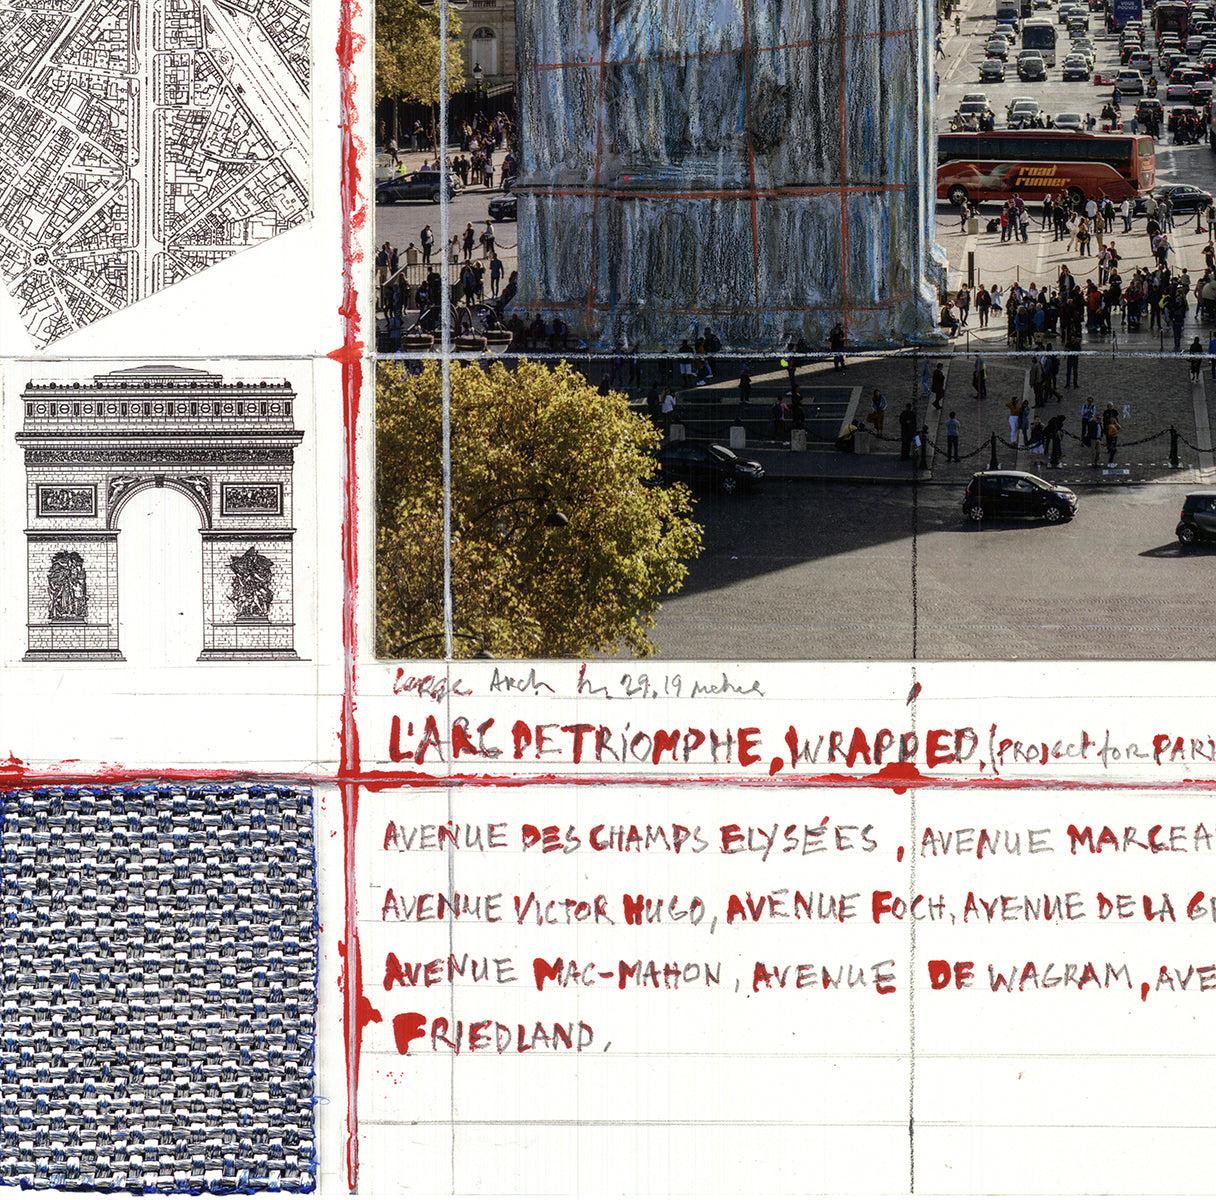 VOUS
POUVEZ
road
runner
Large Arch h. 29,19 metres
L'ARC DE TRIOMPHE, WRAPPED, (PROJECT for PARI
AVENUE DES CHAMPS ELYSÉES, AVENUE MARCEA
AVENUE VICTOR HUGO, AVENUE FOCH, AVENUE DE LA G
AVENUE MAC-MAHON, AVENUE DE WAGRAM, AVE
FRIEDLAND,